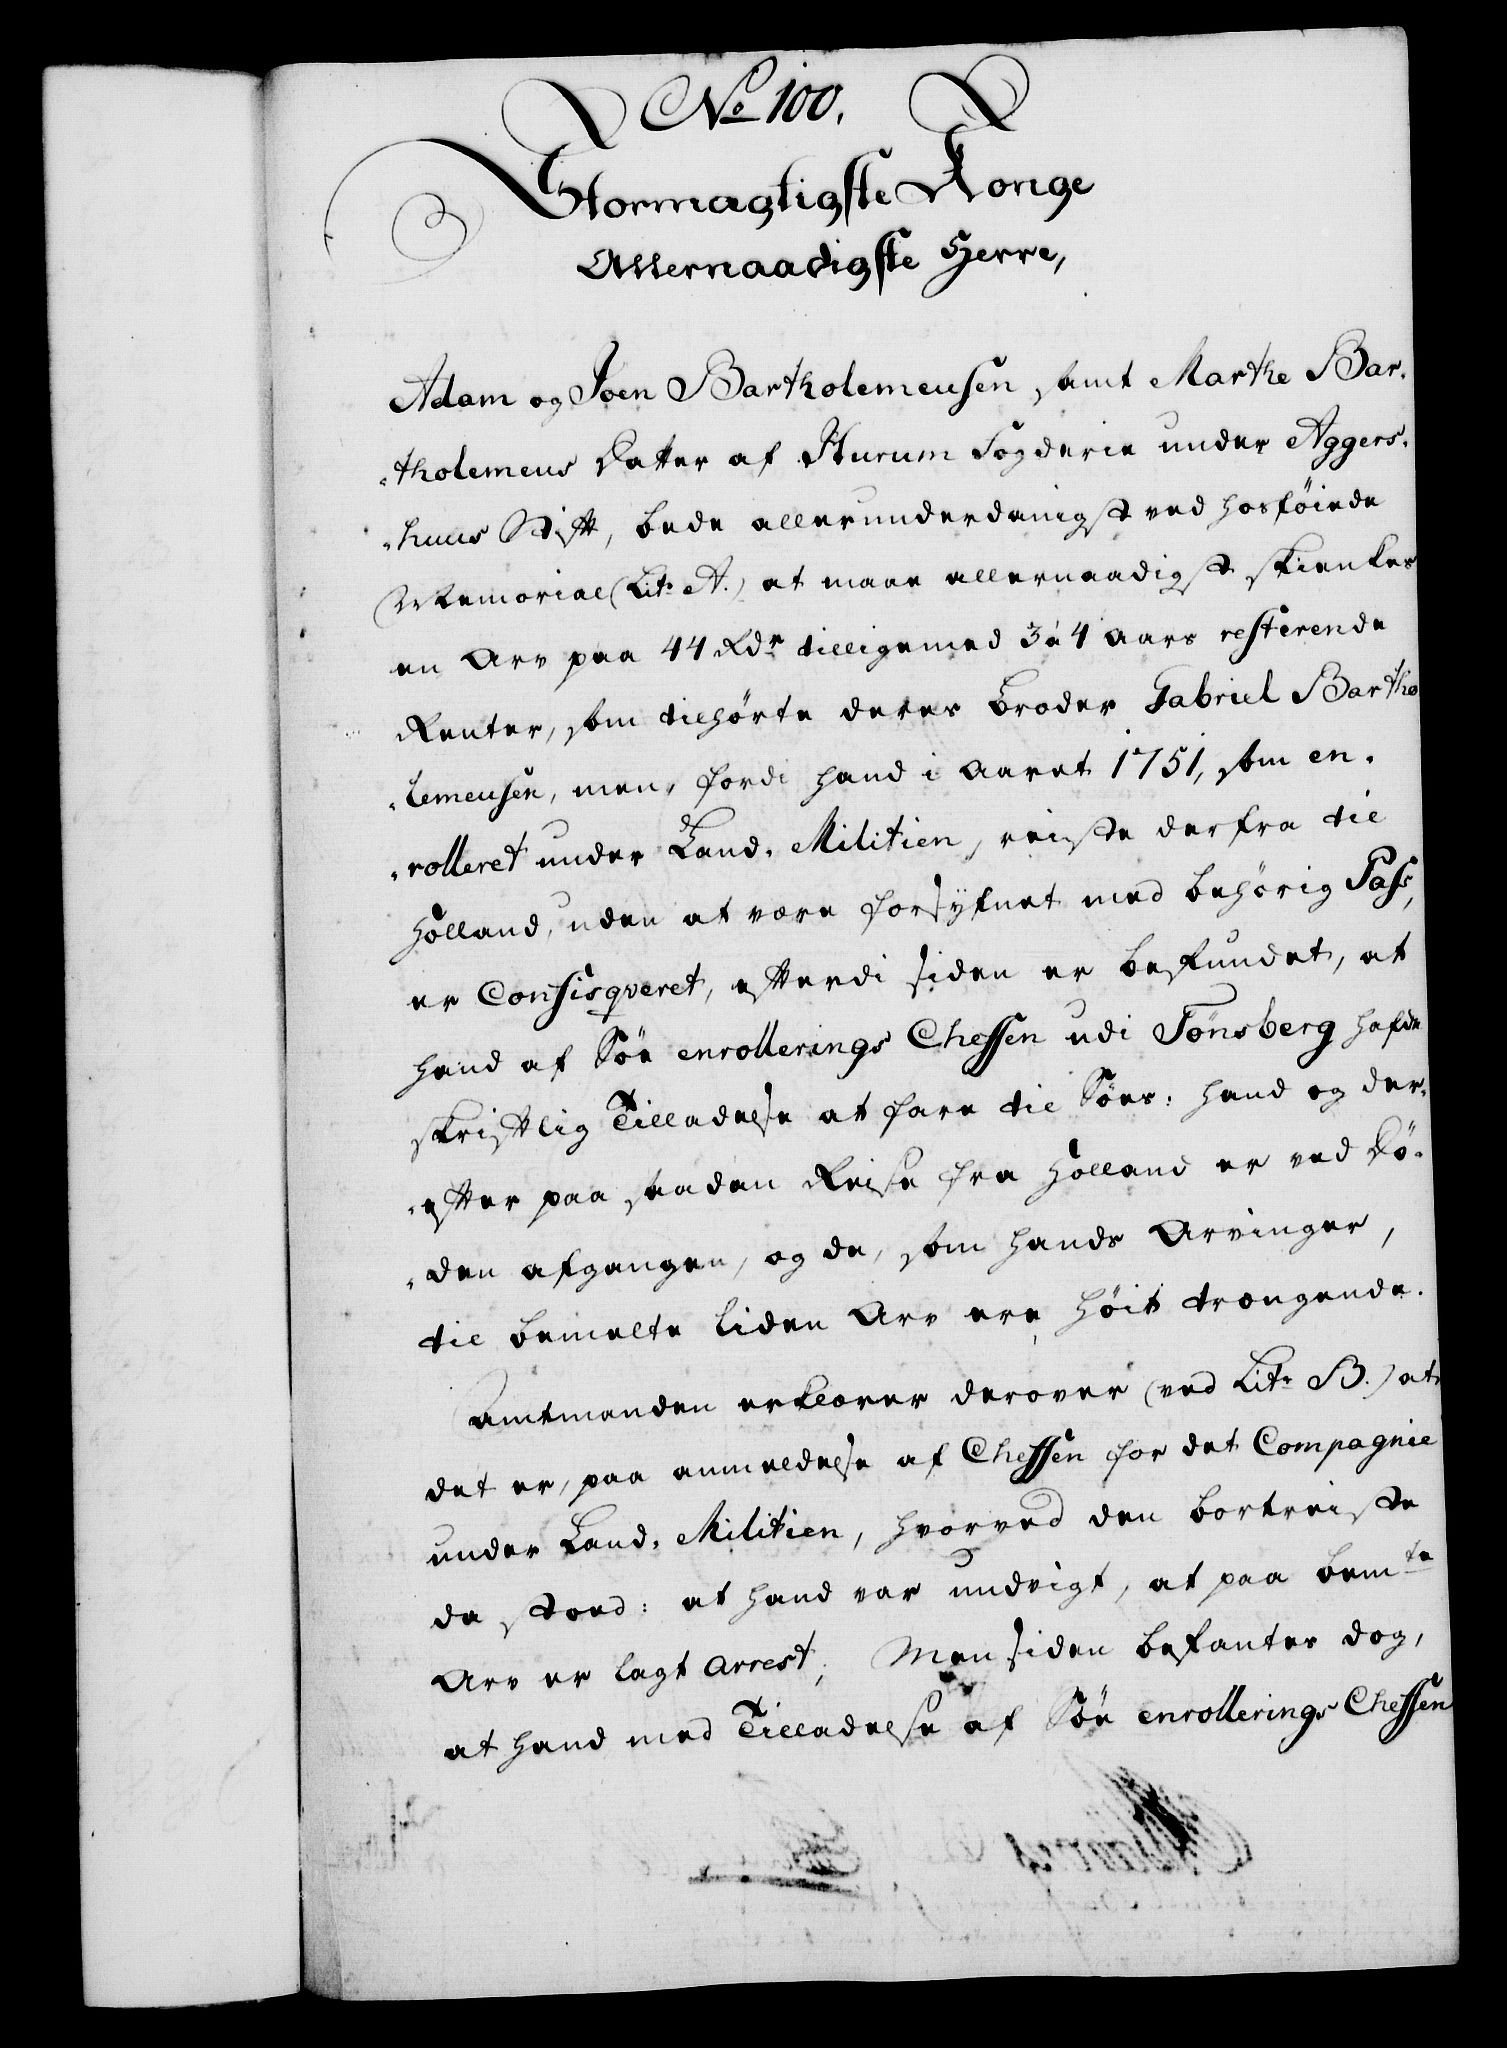 No 100.
Stormagtigste Konge
Allernaadigste Herre,
Adam og Joen Bartholemeusen samt Marthe Bar-
-tholemeus Datter af Hurum Fogderie under Aggers-
-huus Stift, bede allerunderdanigst ved hosføiede
Memorial (Litr A.) at maae allernaadigst skienkes
en Arv paa 44 Rdr tilligemed 3 à 4 Aars resterende
Renter, som tilhørte deres Broder Gabriel Bartho
-lemeusen, men, fordi hand i Aaret 1751, som en-
-rolleret under Land-Militien, reiste derfra til
Holland, uden at være forsynet med behørig Pass,
er Confisqveret, efterdi siden er befundet, at
hand af Søe enrollerings Cheffen udi Tønsberg hafde
skriftlig Tilladelse at fare til Søes: hand og der-
-efter paa saadan Reise fra Holland er ved Dø-
-den afgangen, og de, som hands Arvinger,
til bemelte liden Arv ere høit trængende.
Amtmanden erklærer derover (ved Litr B.) at
det er, paa anmeldelse af Cheffen for det Compagnie
under Land-Militien, hvorved den bortreiste
da stoed: at hand var undvigt, at paa bemte
Arv er lagt Arrest; Men siden befantes dog,
at hand med Tilladelse af Søe enrollerings Cheffen